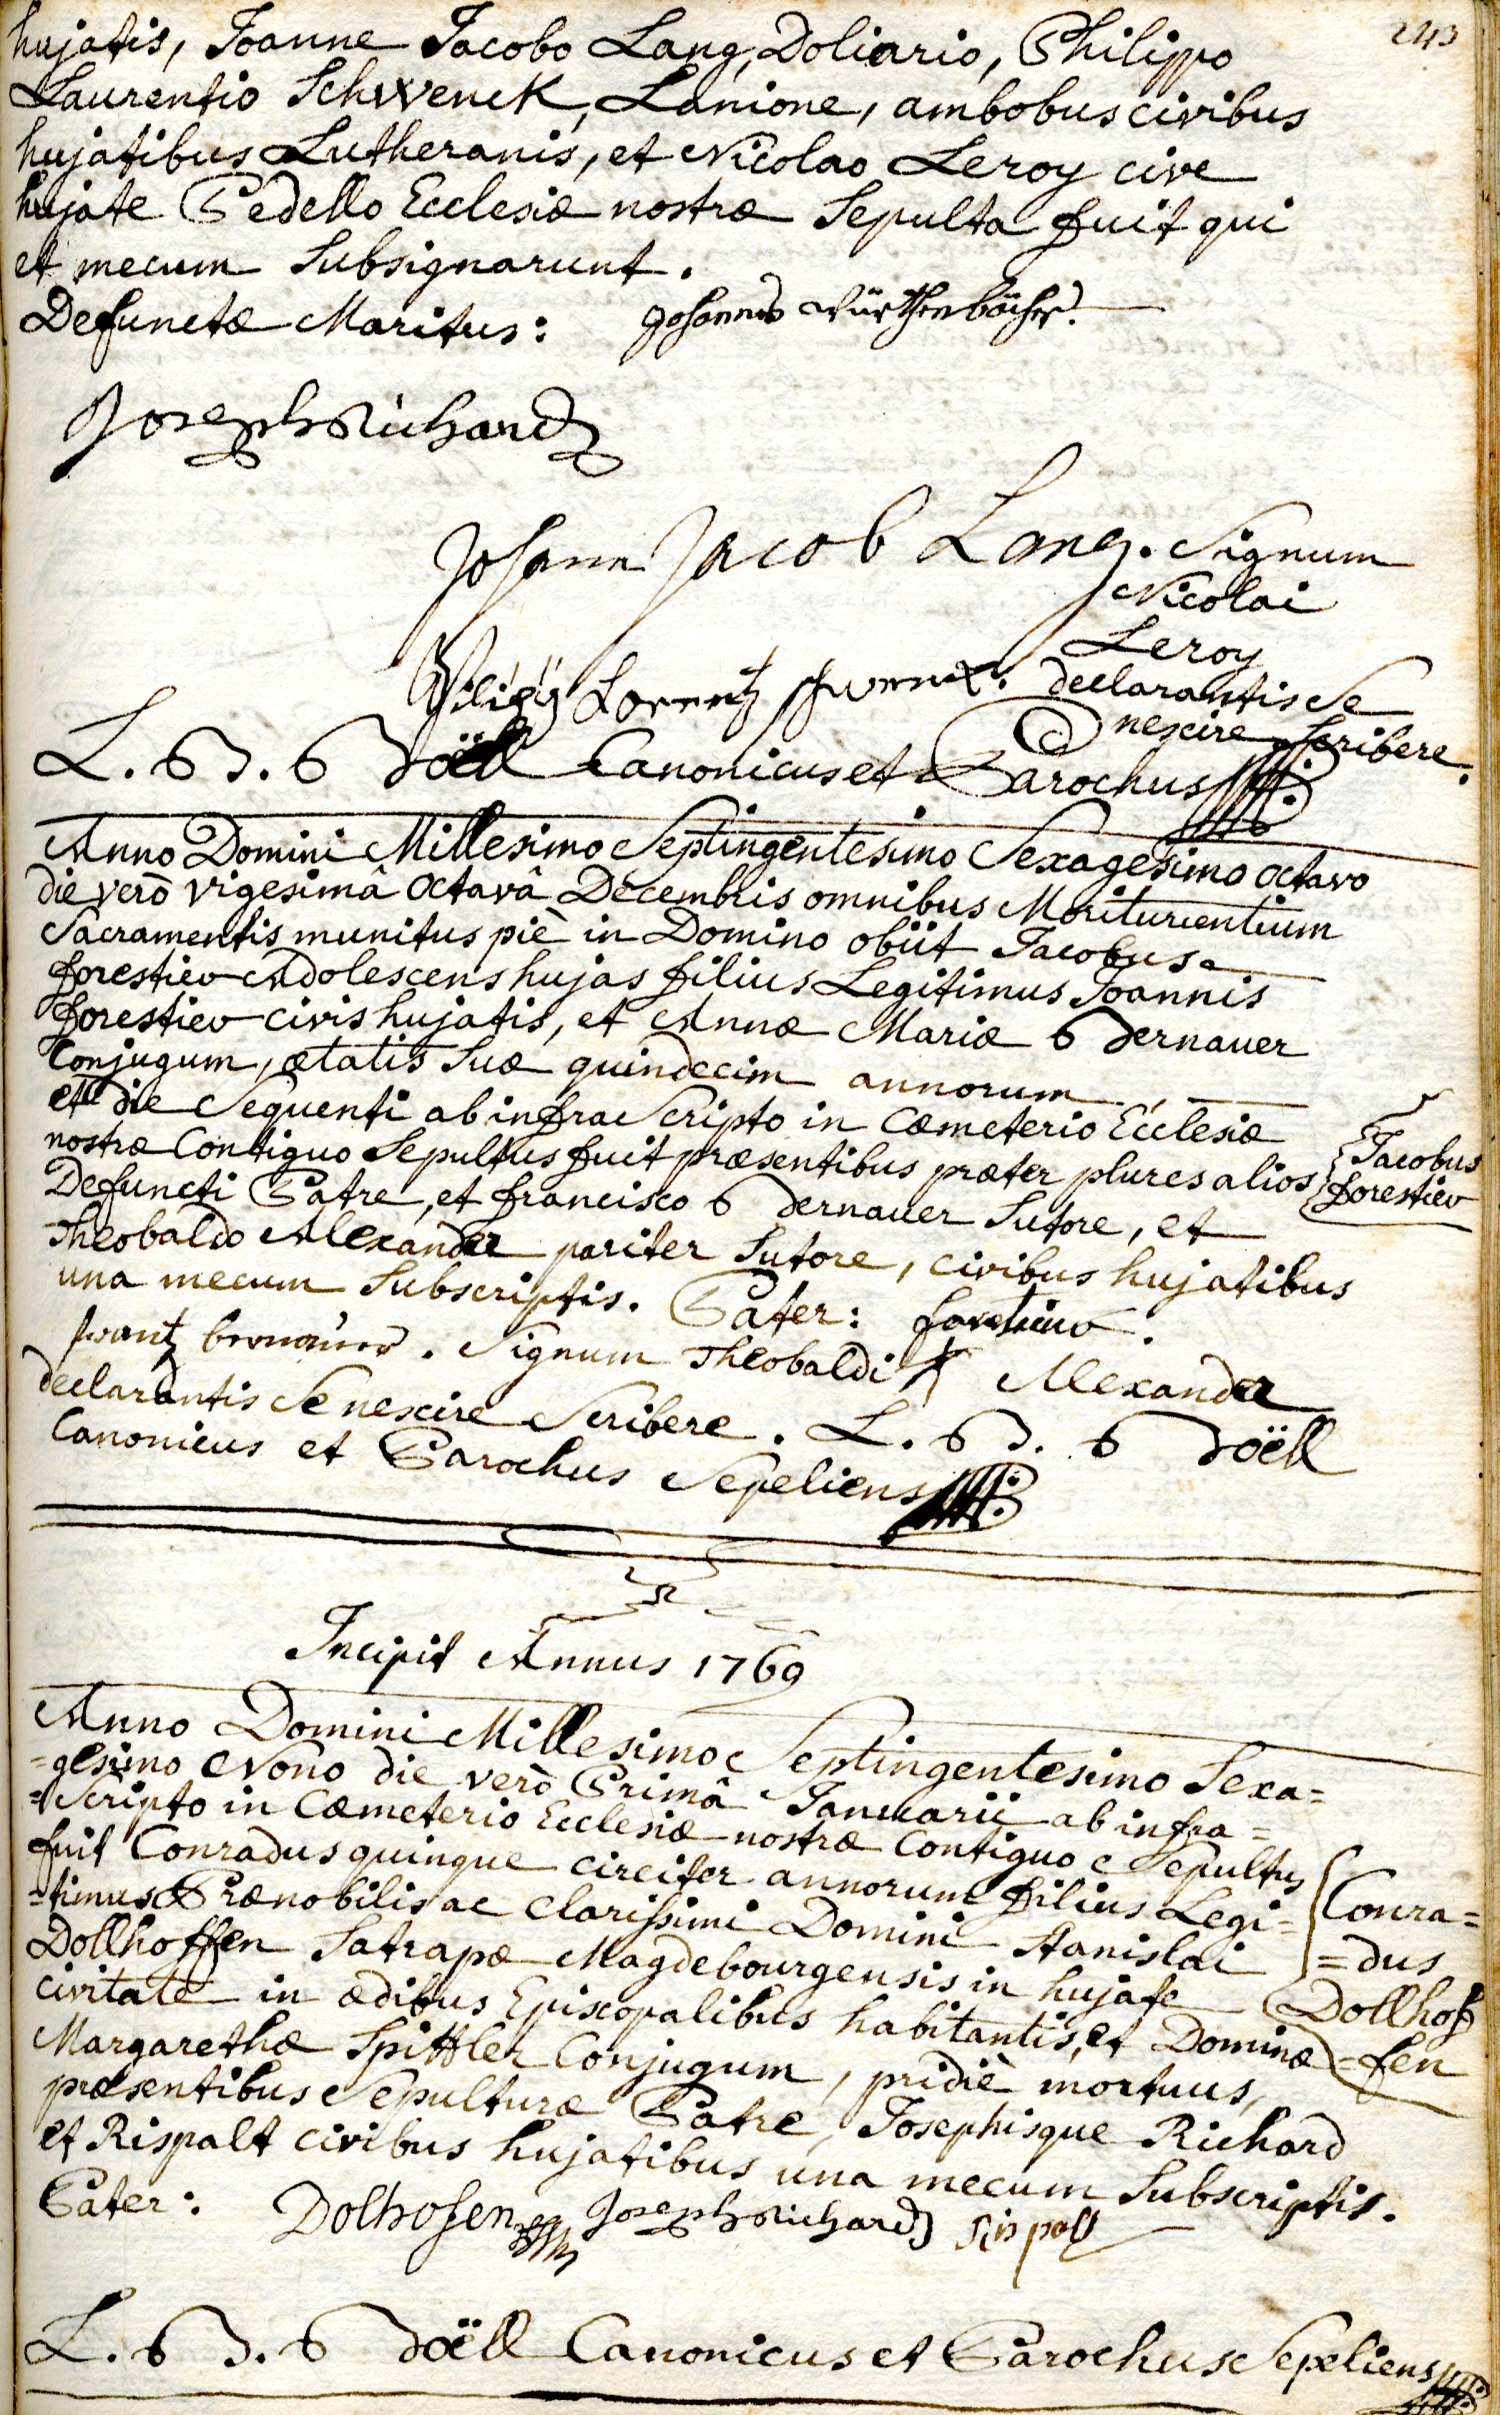 243
hujatis, Joanne Jacobo Lang, Doliario, Philippo
Laurentio Schwenck, Lanione, ambobus civibus
hujatibus Lutheranis, et Nicolao Leroy cive
hujate Pedello Ecclesiæ nostræ Sepulta fuit qui
et mecum Subsignarunt.
Defunctæ Maritus: Johannes
Joseph Richard
Johann Jacob Lang. Signum
Nicolai
Leroy
Philipp Lorentz Schwenck. declarantis Se
nescire Scribere.
L. B. Doëll Canonicus et Parochus
Anno Domini Millesimo Septingentesimo Sexagesimo octavo
die verò vigesimâ octavâ Decembris omnibus Moriturientium
Sacramentis munitus piè in Domino obiit Jacobus
forestier Adolescens hujas filius Legitimus Joannis
forestier civis hujatis, et Annæ Mariæ Bernauer
Conjugum, ætatis suæ quindecim annorum
et die Sequenti ab infra Scripto in Cæmeterio Ecclesiæ
nostræ Contiguo Sepultus fuit præsentibus præter plures alios
Jacobus
forestier
Defuncti Patre, et francisco Bernauer Sutore, et
Theobaldo Alexander pariter Sutore, civibus hujatibus
una mecum Subscriptis. Pater: forestier.
frantz bernauer. Signum Theobaldi Alexander
declarantis Se nescire Scribere. L. B. Doëll
Canonicus et Parochus Sepeliens
Incipit Annus 1769
Anno Domini Millesimo Septingentesimo Sexa=
=gesimo Nono die verò Primâ Januarii ab infra=
=Scripto in Cæmeterio Ecclesiæ nostræ Contiguo Sepultus
fuit Conradus quinque circiter annorum filius Legi=
=timus Prænobilis ac Clarissimi Domini Stanislai
Dollhoffen Satrapæ Magdebourgensis in hujate
civitate in ædibus Episcopalibus habitantis, et Dominæ
Margarethæ Spittler Conjugum, pridiè mortuus,
Conra=
=dus
Dollhof
=fen
præsentibus Sepulturæ Patre, Josephisque Richard
et Rispalt civibus hujatibus una mecum Subscriptis.
Pater: Dolhofen Joseph Richard Rispalt
L. B. Doëll Canonicus et Parochus Sepeliens